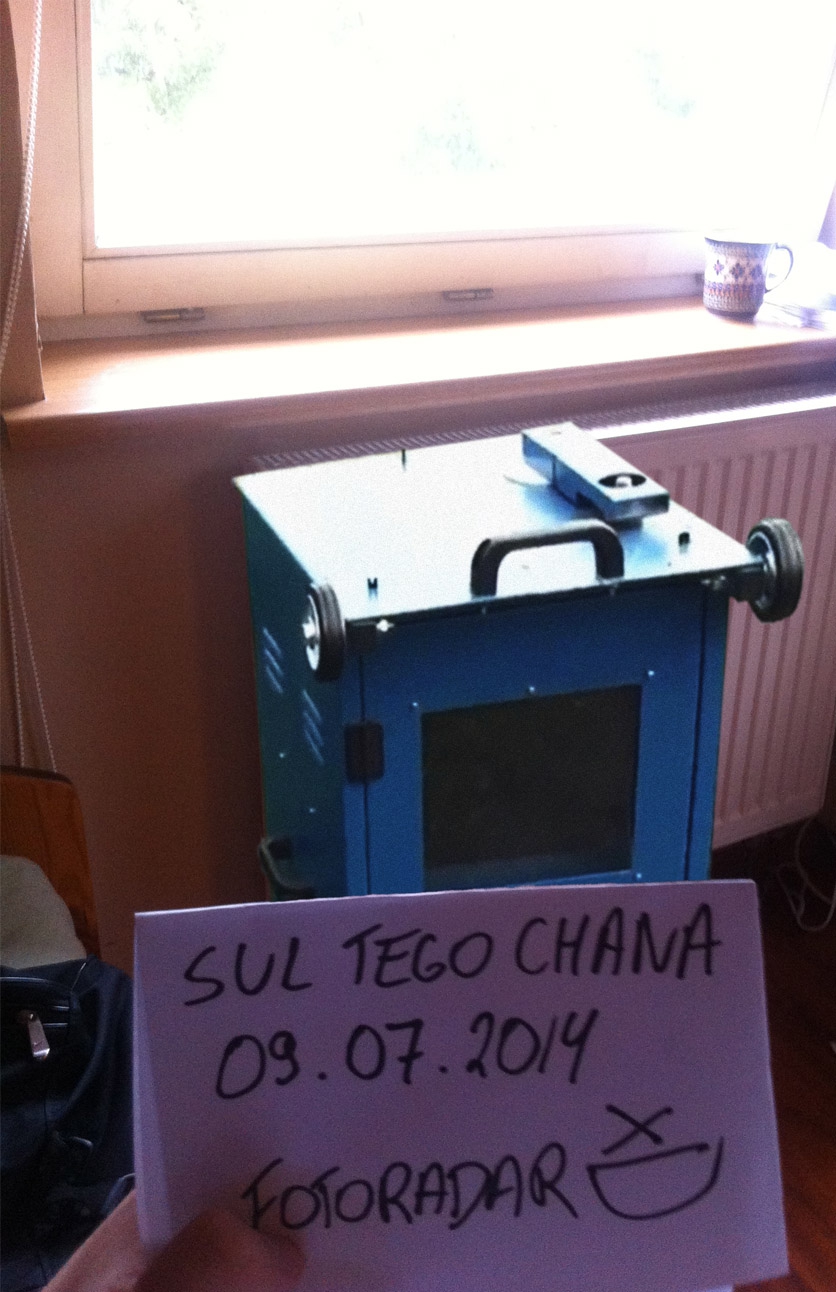 SUL TEGO CHANA
09.07.2014
FOTORADAR